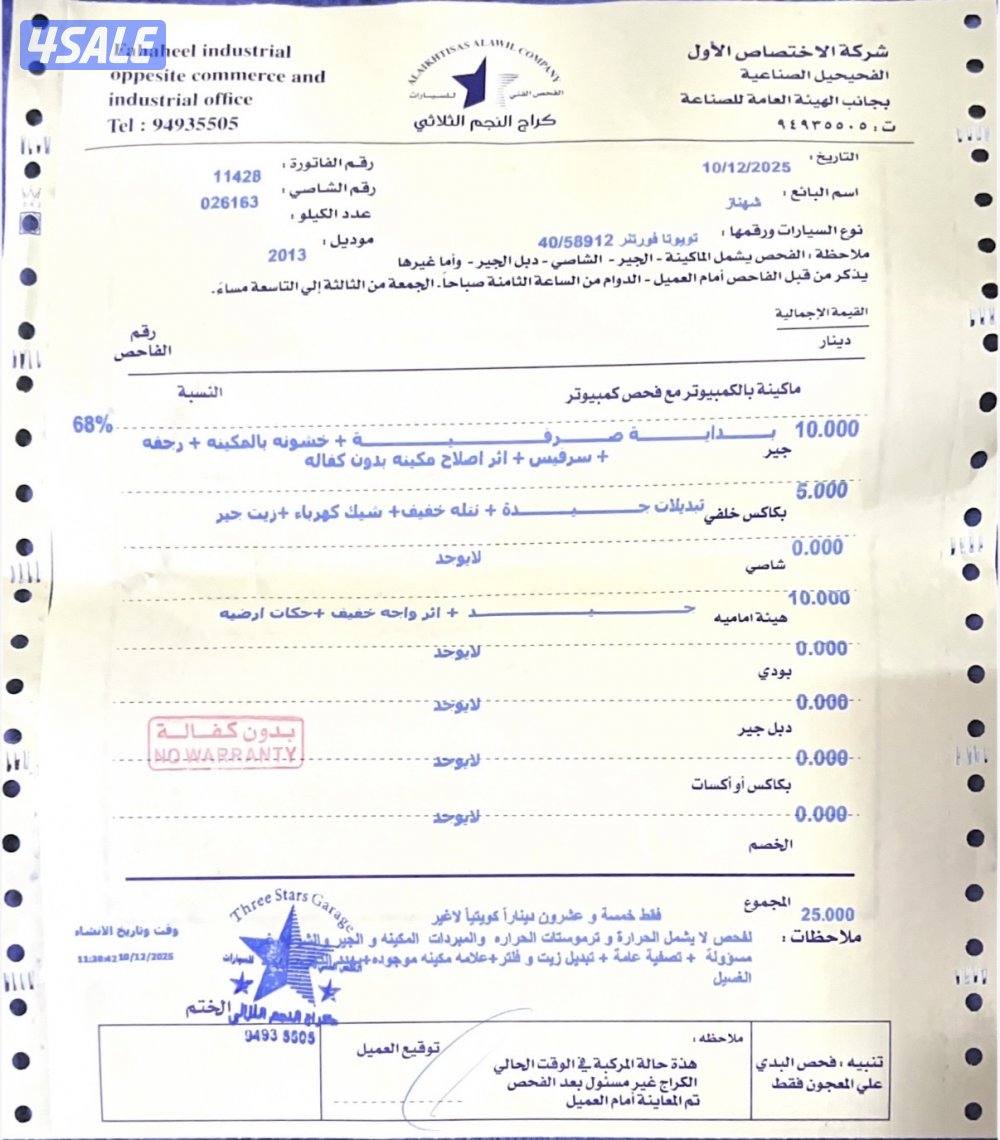 4SALE
Fahaheel industrial
opposite commerce and
industrial office
Tel : 94935505
ALAIKHTISAS ALAWIL COMPANY
الفحص الفني للسيارات
كراج النجم الثلاثي
شركة الاختصاص الأول
الفحيحيل الصناعية
بجانب الهيئة العامة للصناعة
ت : ٩٤٩٣٥٥٠٥
التاريخ : 10/12/2025
رقم الفاتورة : 11428
اسم البائع : شهناز
رقم الشاصي : 026163
عدد الكيلو :
نوع السيارات ورقمها : تويوتا فورتنر 40/58912
موديل : 2013
ملاحظة : الفحص يشمل الماكينة - الجير - الشاصي - دبل الجير - وأما غيرها
يذكر من قبل الفاحص أمام العميل - الدوام من الساعة الثامنة صباحاً. الجمعة من الثالثة إلي التاسعة مساءً.
القيمة الإجمالية
دينار
رقم
الفاحص
ماكينة بالكمبيوتر مع فحص كمبيوتر
النسبة
10.000 بداية صرفية + خشونه بالمكينه + رجفه 68%
+ سرفيس + اثر اصلاح مكينه بدون كفاله
جير
5.000 تبديلات جيدة + نتله خفيف+ شيك كهرباء +زيت جير
بكاكس خلفي
0.000 لايوجد
شاصي
10.000 جيد + اثر واجه خفيف +حكات ارضيه
هيئة اماميه
0.000 لايوجد
بودي
0.000 لايوجد
دبل جير
0.000 لايوجد
بكاكس أو أكسات
0.000 لايوجد
الخصم
بدون كفالة
NO WARRANTY
المجموع
25.000 فقط خمسة و عشرون ديناراً كويتياً لاغير
ملاحظات : لفحص لا يشمل الحرارة و ترموستات الحراره والمبردات المكينه و الجير
مسؤولة + تصفية عامة + تبديل زيت و فلتر+علامه مكينه موجوده+
الغسيل
وقت وتاريخ الانشاء
11:30:42 10/12/2025
Three Stars Garage
للسيارات الفحص الفني
كراج النجم الثلاثي
9493 5505
الختم
تنبيه : فحص البدي
علي المعجون فقط
ملاحظه :
هذة حالة المركبة في الوقت الحالي
الكراج غير مسئول بعد الفحص
تم المعاينة أمام العميل
توقيع العميل